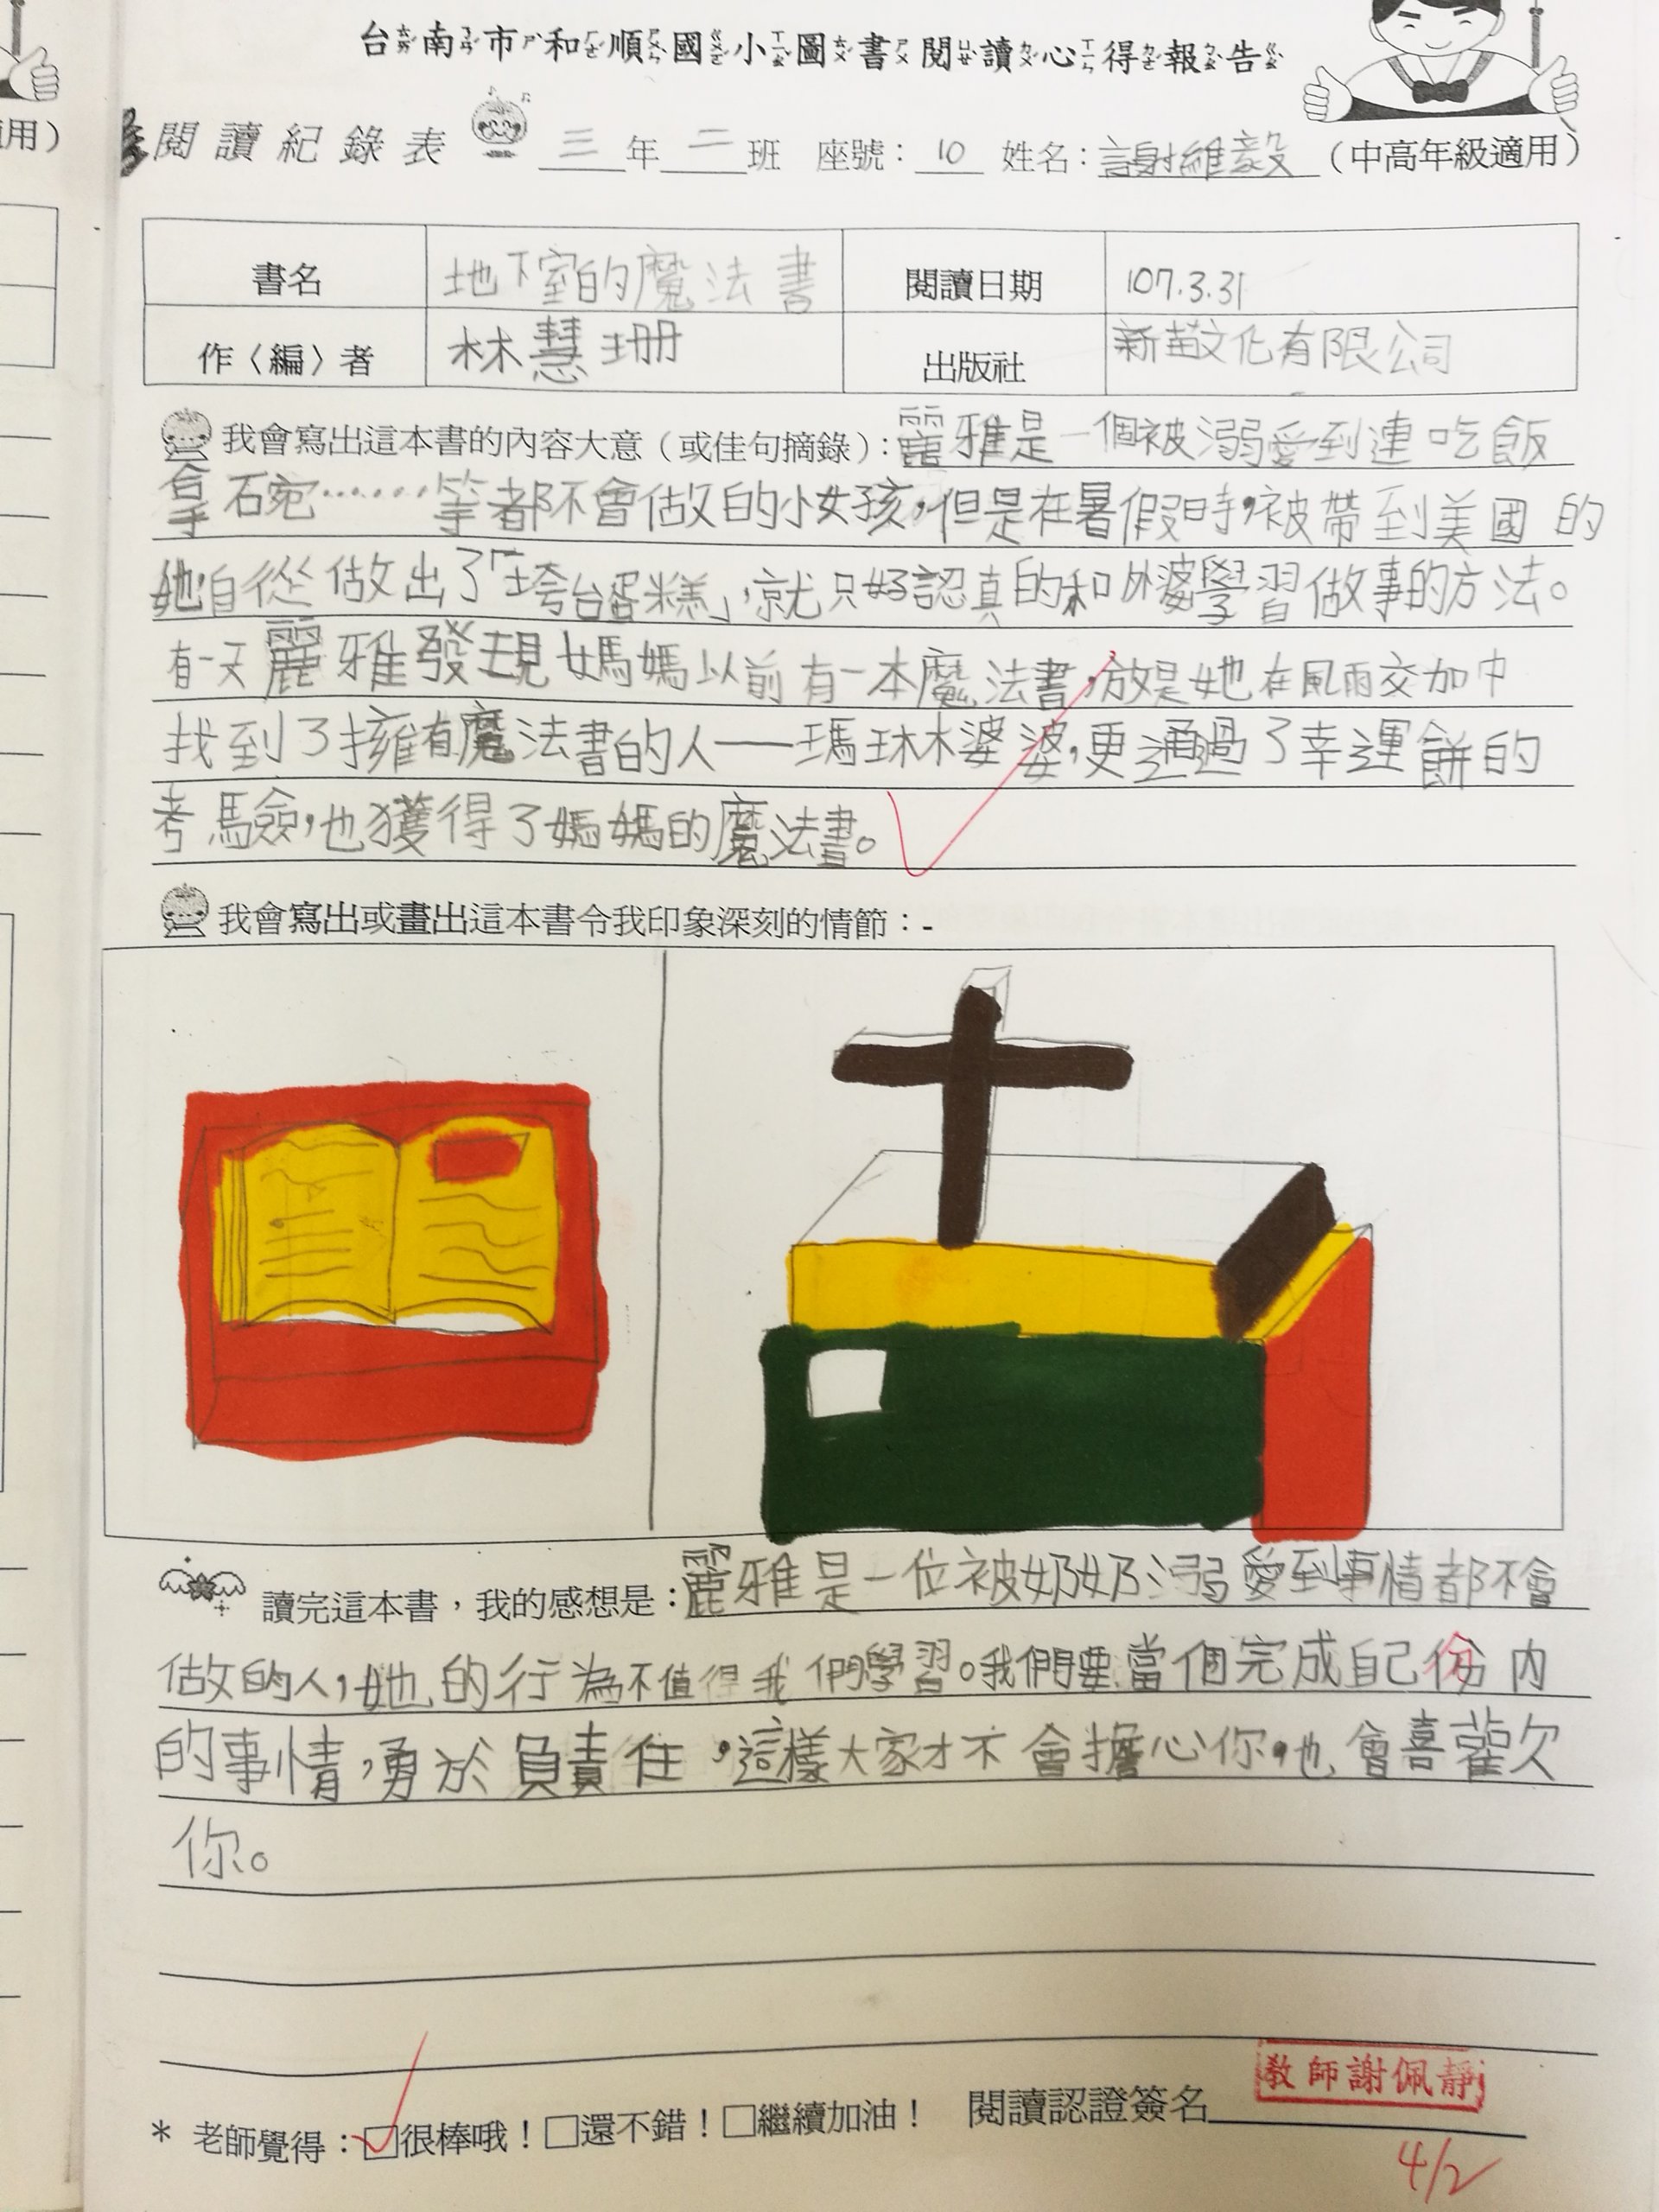 台南市和順國小圖書閱讀心得報告
閱讀紀錄表 三年二班 座號：10 姓名：謝維毅（中高年級適用）
書名 地下室的魔法書 閱讀日期 107.3.31
作〈編〉者 林慧珊 出版社 新苗文化有限公司
我會寫出這本書的內容大意（或佳句摘錄）：麗雅是一個被溺愛到連吃飯
拿碗……等都不會做的小女孩，但是在暑假時，被帶到美國的
她自從做出了「垮台蛋糕」，就只好認真的和外婆學習做事的方法。
有一天麗雅發現媽媽以前有一本魔法書，於是她在風雨交加中
找到了擁有魔法書的人——瑪琳婆婆，更通過了幸運餅的
考驗，也獲得了媽媽的魔法書。
我會寫出或畫出這本書令我印象深刻的情節：-
讀完這本書，我的感想是：麗雅是一位被奶奶溺愛到事情都不會
做的人，她的行為不值得我們學習。我們要當個完成自己份內
的事情，勇於負責任，這樣大家才不會擔心你，也會喜歡
你。
* 老師覺得：☑很棒哦！□還不錯！□繼續加油！ 閱讀認證簽名 教師謝佩靜
4/2
用）